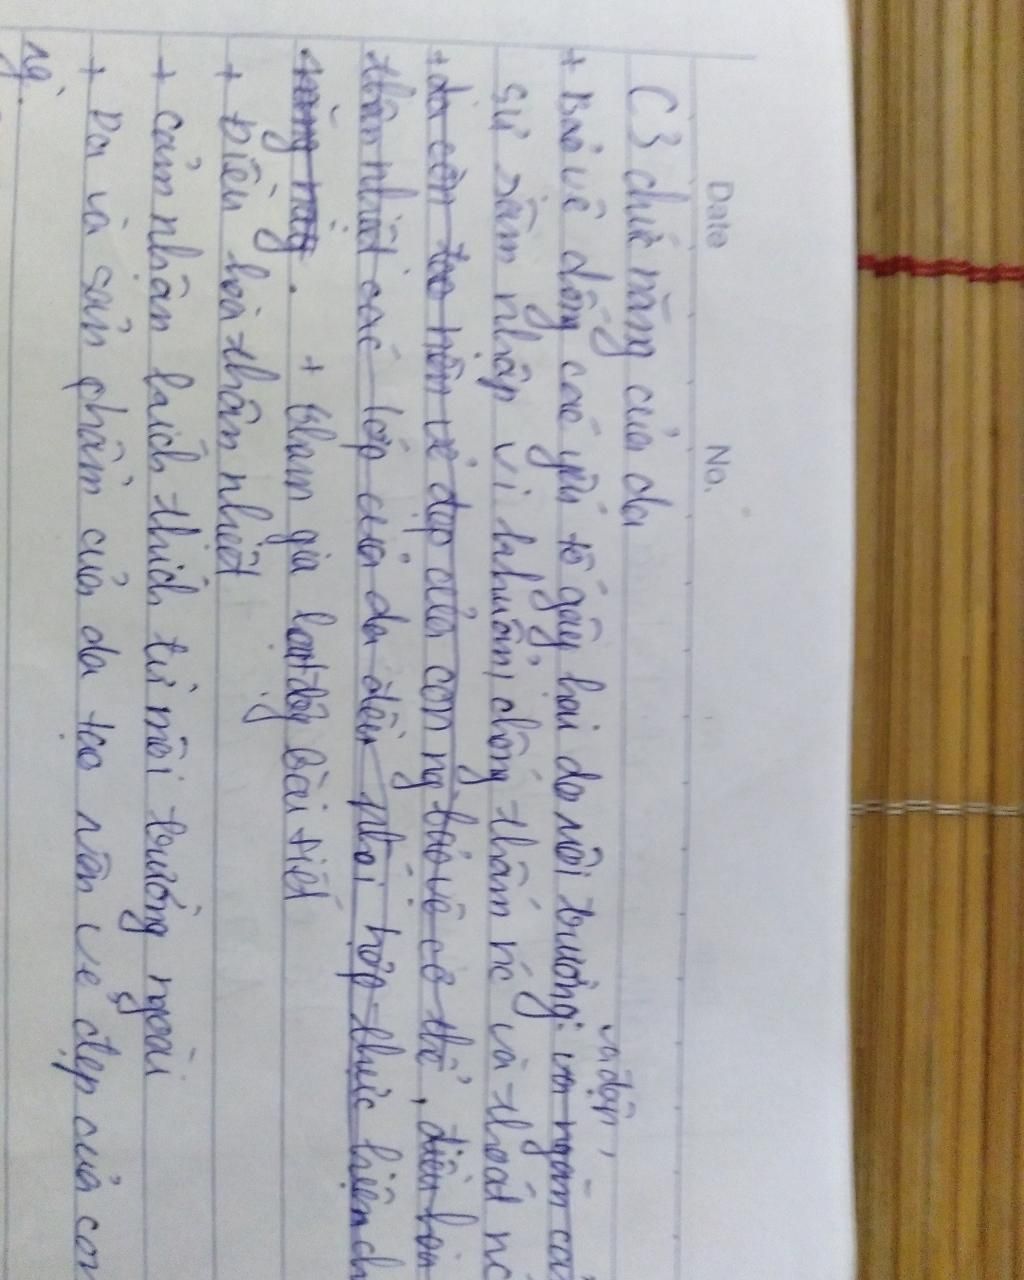 Date No.
C3 chức năng của da
và đập,
+ Bảo vệ dống các yếu tố gây hại do môi trường: ngăn
sự xâm nhập vi khuẩn, chống thấm nc và thoát nc
+ da còn tạo nên vẻ đẹp của con ng bảo vệ cơ thể, điều hòa
thân nhiệt các lớp của da đều phối hợp thực hiện ch
năng này. + tham gia hoạt động bài tiết
+ Điều hoà thân nhiệt
+ cảm nhận kích thích từ môi trường ngoài
+ Da và sản phẩm của da tạo nên vẻ đẹp của con
ng.